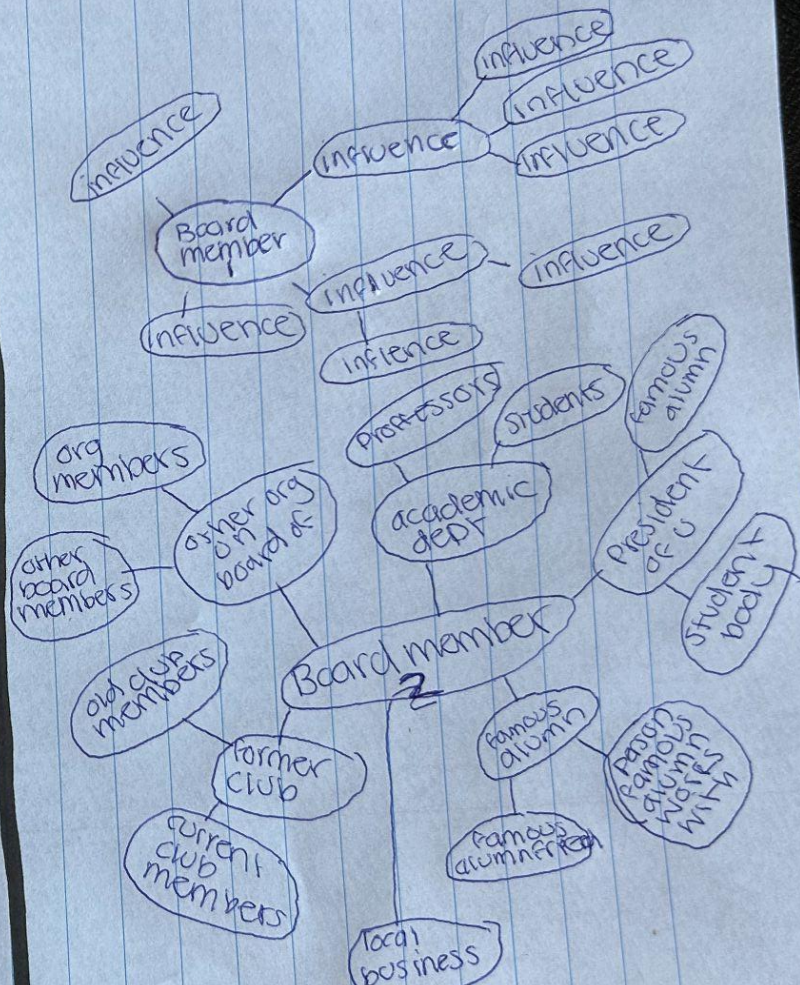 influence
influence
influence
influence
influence
Board
member
1
influence
influence
influence
infience
Proffessors
students
famous
alumn
org
members
other org
on
board of
academic
dept
President
of u
other
board
members
student
body
Board member
2
old club
members
famous
alumn
former
club
famous
alumn
works
with
current
club
members
famous
local
business